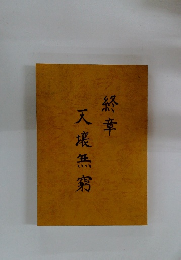 終章
天壌無窮